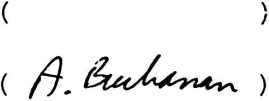 ( )
( A. Buchanan )